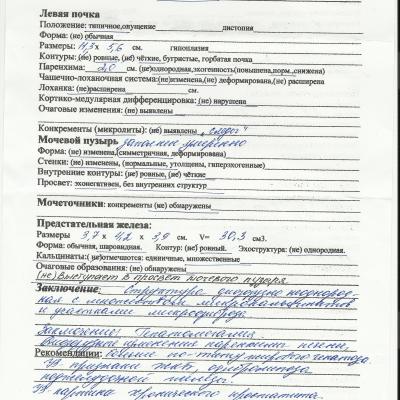 Левая почка
Положение: типичное, опущение дистопия
Форма: (не) обычная
Размеры: 11,3 х 5,6 см. гипоплазия
Контуры: (не) ровные, (не) чёткие, бугристые, горбатая почка
Паренхима: 2,0 см. (не)однородная, эхогенность(повышена, норм., снижена)
Чашечно-лоханочная система:(не)изменена,(не) деформирована,(не) расширена
Лоханка: (не)расширена см.
Кортико-медулярная дифференцировка: (не) нарушена
Очаговые изменения: (не) выявлены
Конкременты (микролиты): (не) выявлены
Мочевой пузырь заполнен умеренно
Форма: (не) изменена,(симметричная, деформирована)
Стенки: (не) изменены, (нормальные, утолщены, гиперэхогенные)
Внутренние контуры: (не) ровные, (не) чёткие
Просвет: эхонегативен, без внутренних структур
Мочеточники: (не) обнаружены
Предстательная железа:
Размеры 3,7 х 4,2 х 3,9 см. V= 30,3 см3.
Форма: обычная, шаровидная. Контур: (не) ровный. Эхоструктура: (не) однородная.
Кальцинаты:(не)отмечаются: единичные, множественные
Очаговые образования: (не) обнаружены
(не) Выступает в просвет мочевого пузыря
Заключение: Структура диффузно неоднород-
ная с множеством микрокальцинатов
и участками микрофиброза
Заключение: Гепатомегалия.
Диффузные изменения паренхимы печени,
Рекомендации: более по типу жирового гепатоза.
Уз признаки ЖКБ, липоматоза
поджелудочной железы.
Уз картина хронического простатита.